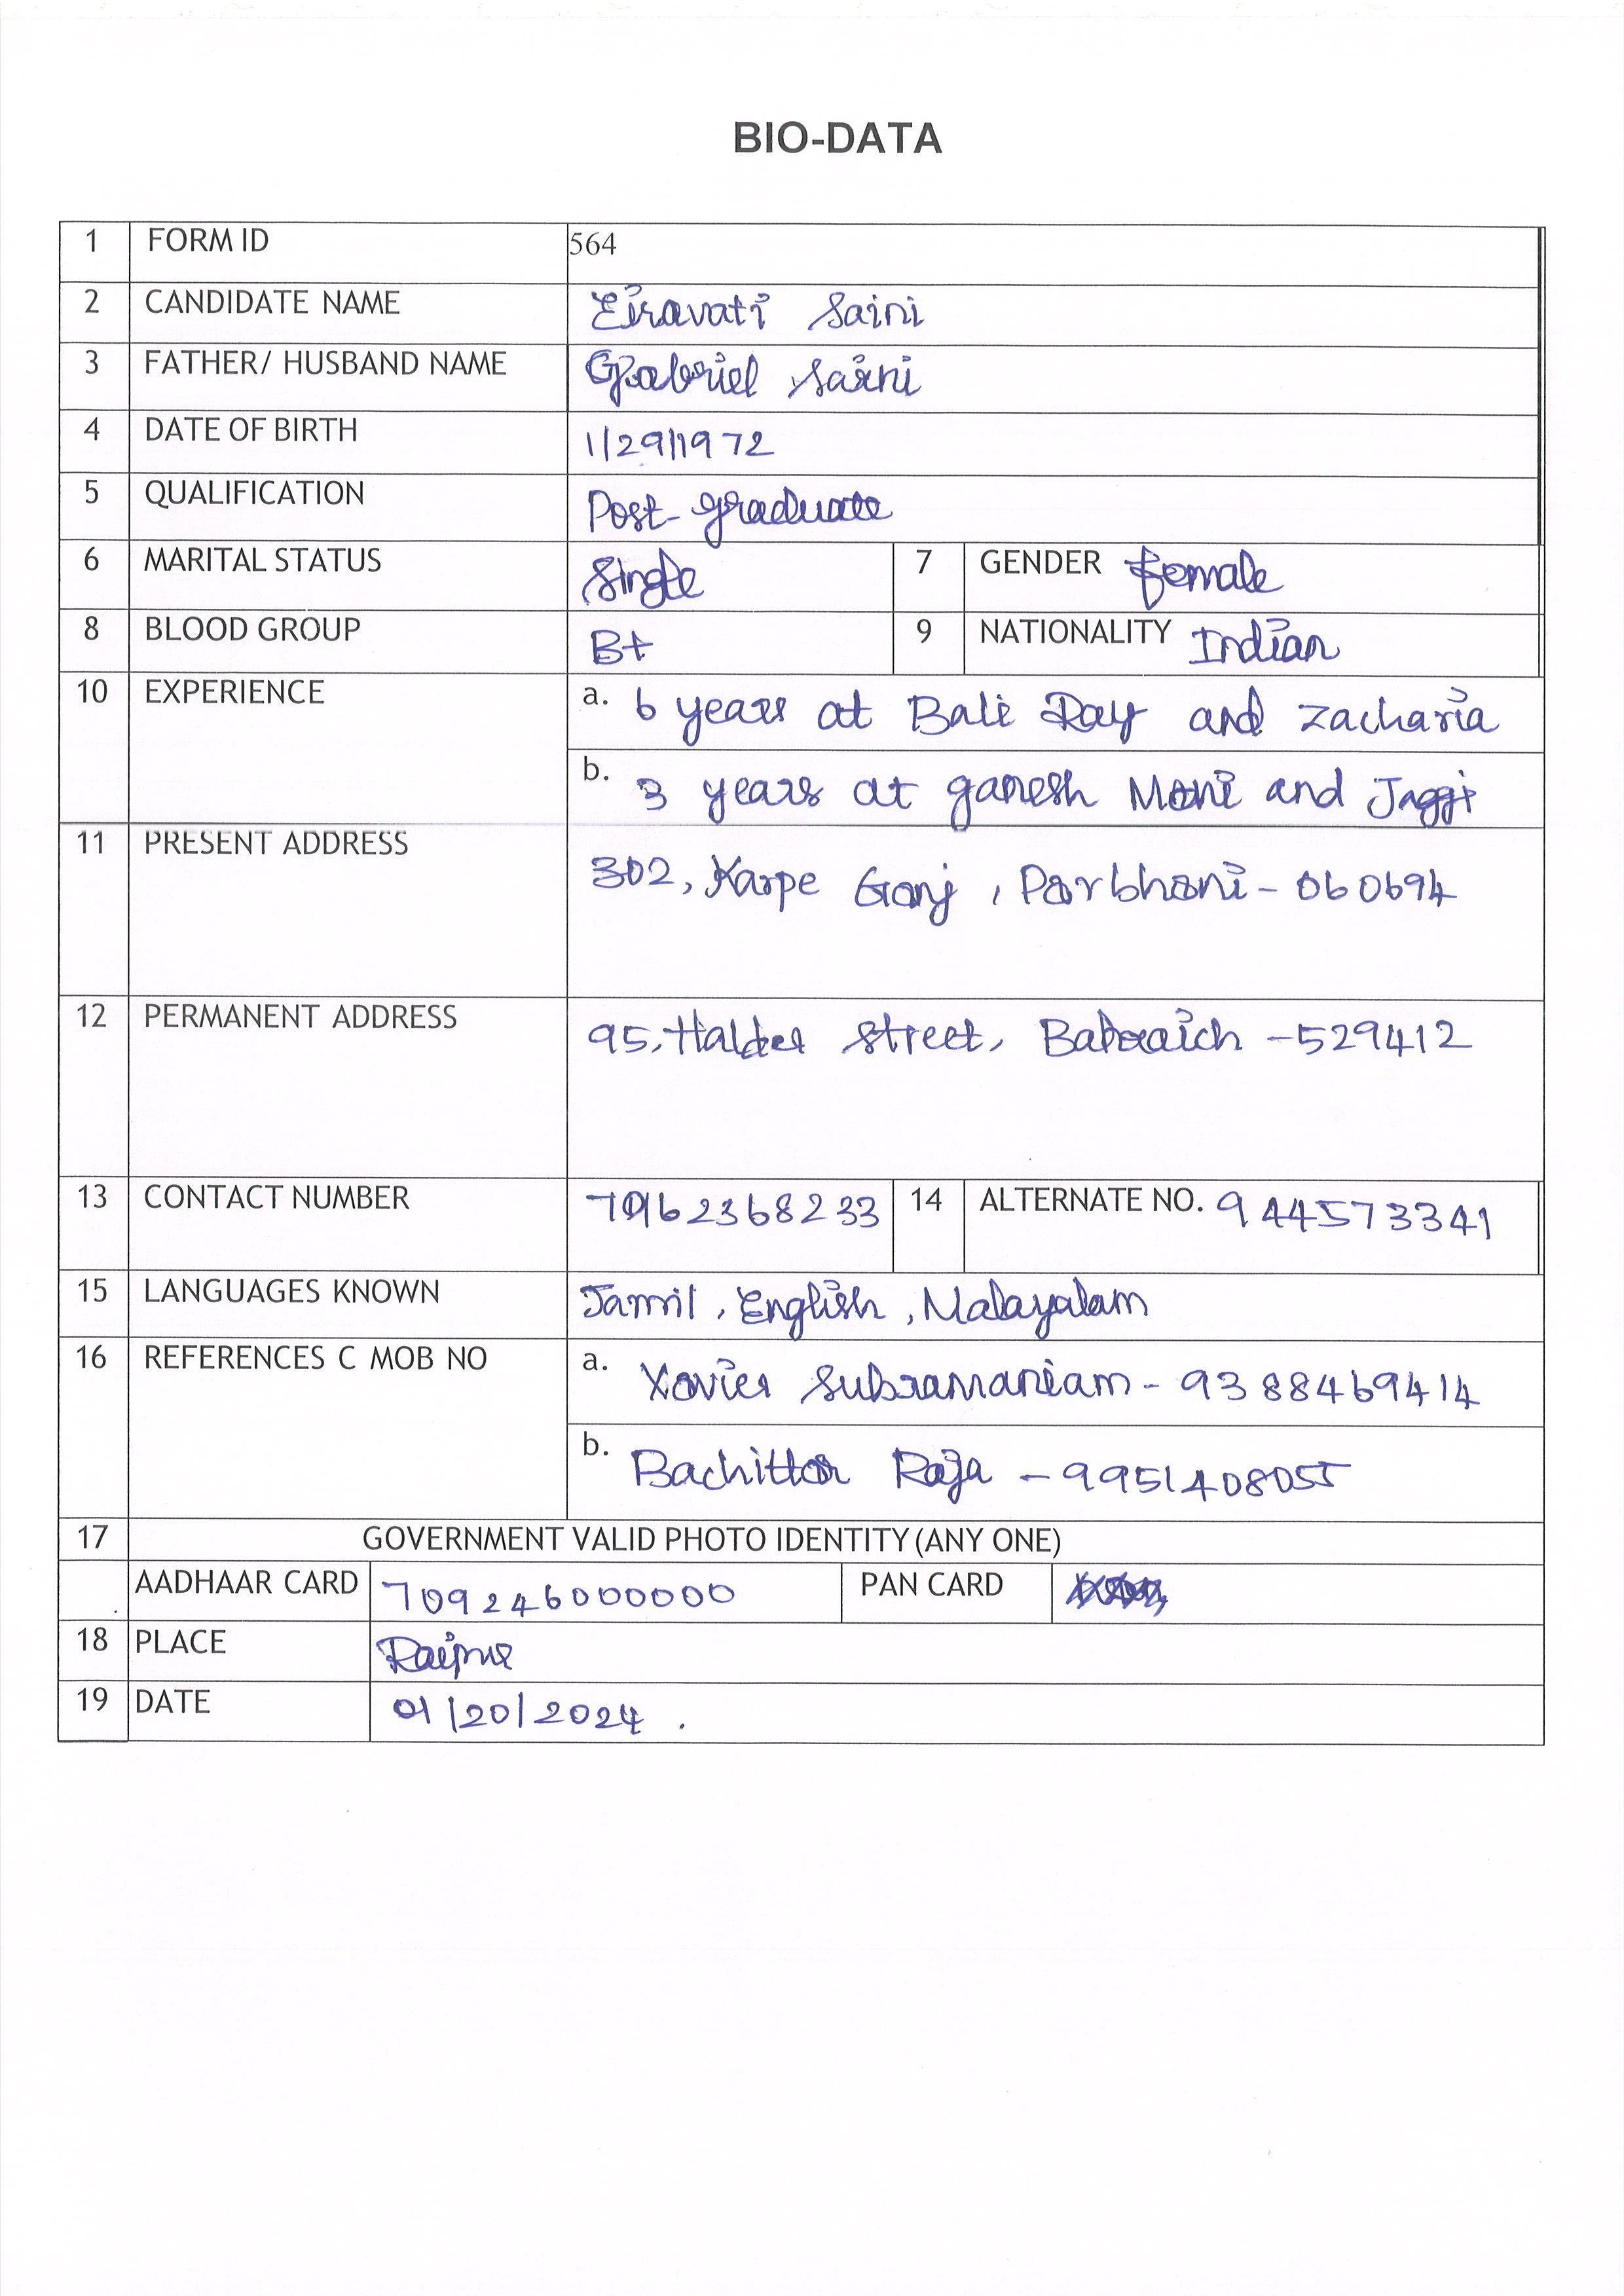 BIO-DATA
1 FORM ID 564
2 CANDIDATE NAME Eiravati Saini
3 FATHER/ HUSBAND NAME Gabriel Saini
4 DATE OF BIRTH 1/29/1972
5 QUALIFICATION Post-graduate
6 MARITAL STATUS Single 7 GENDER female
8 BLOOD GROUP B+ 9 NATIONALITY Indian
10 EXPERIENCE a. 6 years at Bali Ray and Zacharia
b. 3 years at ganesh Mani and Jaggi
11 PRESENT ADDRESS 302, Karpe Ganj, Parbhani - 060694
12 PERMANENT ADDRESS 95, Halder Street, Bahraich - 529412
13 CONTACT NUMBER 7962368233 14 ALTERNATE NO. 944573341
15 LANGUAGES KNOWN Tamil, English, Malayalam
16 REFERENCES C MOB NO a. Xavier Subramaniam - 9388469414
b. Bachittar Raja - 9951408055
17 GOVERNMENT VALID PHOTO IDENTITY (ANY ONE)
AADHAAR CARD 709246000000 PAN CARD
18 PLACE Raipur
19 DATE 01/20/2024.